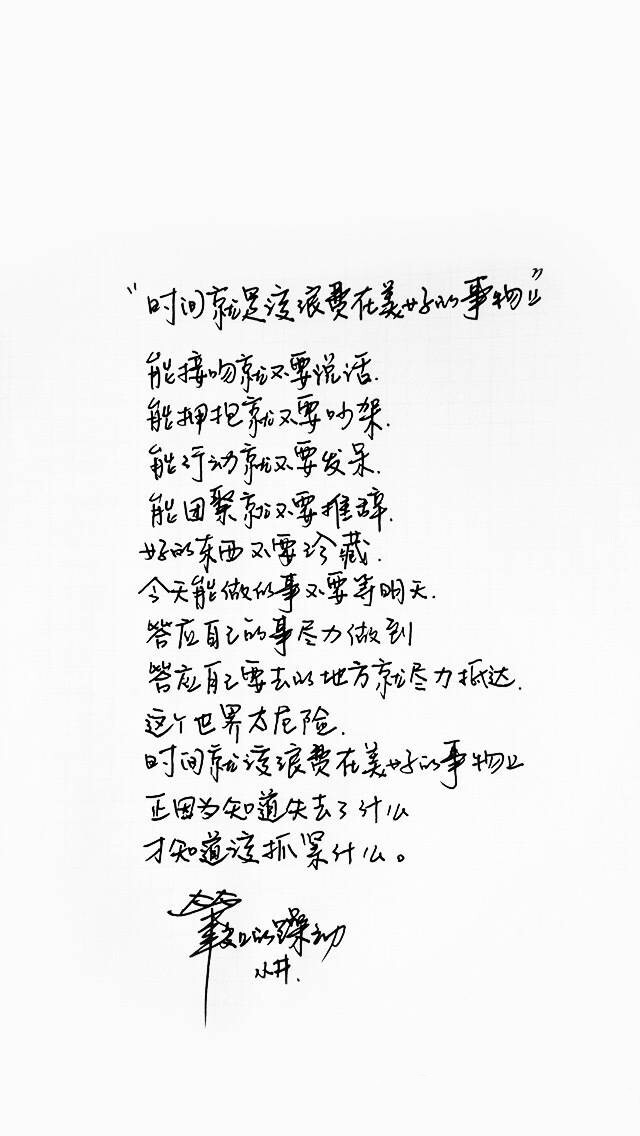 "时间就是该浪费在美好的事物上"
能接吻就不要说话.
能拥抱就不要吵架.
能行动就不要发呆.
能团聚就不要推辞.
好的东西不要珍藏.
今天能做的事不要等明天.
答应自己的事尽力做到
答应自己要去的地方就尽力抵达.
这个世界太危险.
时间就该浪费在美好的事物上
正因为知道失去了什么
才知道该抓紧什么。
的躁动